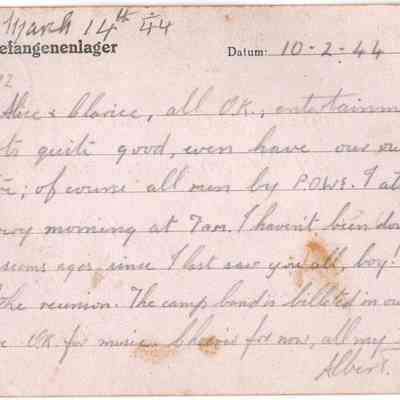 March 14th 44
efangenenlager Datum: 10-2-44
Alice & Clarice, all O.K., entertainm
ts quite good, even have our ow
; of course all run by P.O.W's. I at
ery morning at 7am. I havent been do
seems ages since I last saw you all, boy!
the reunion. The camp band is billeted in ou
OK for music. Cheerio for now, all my
Albert.